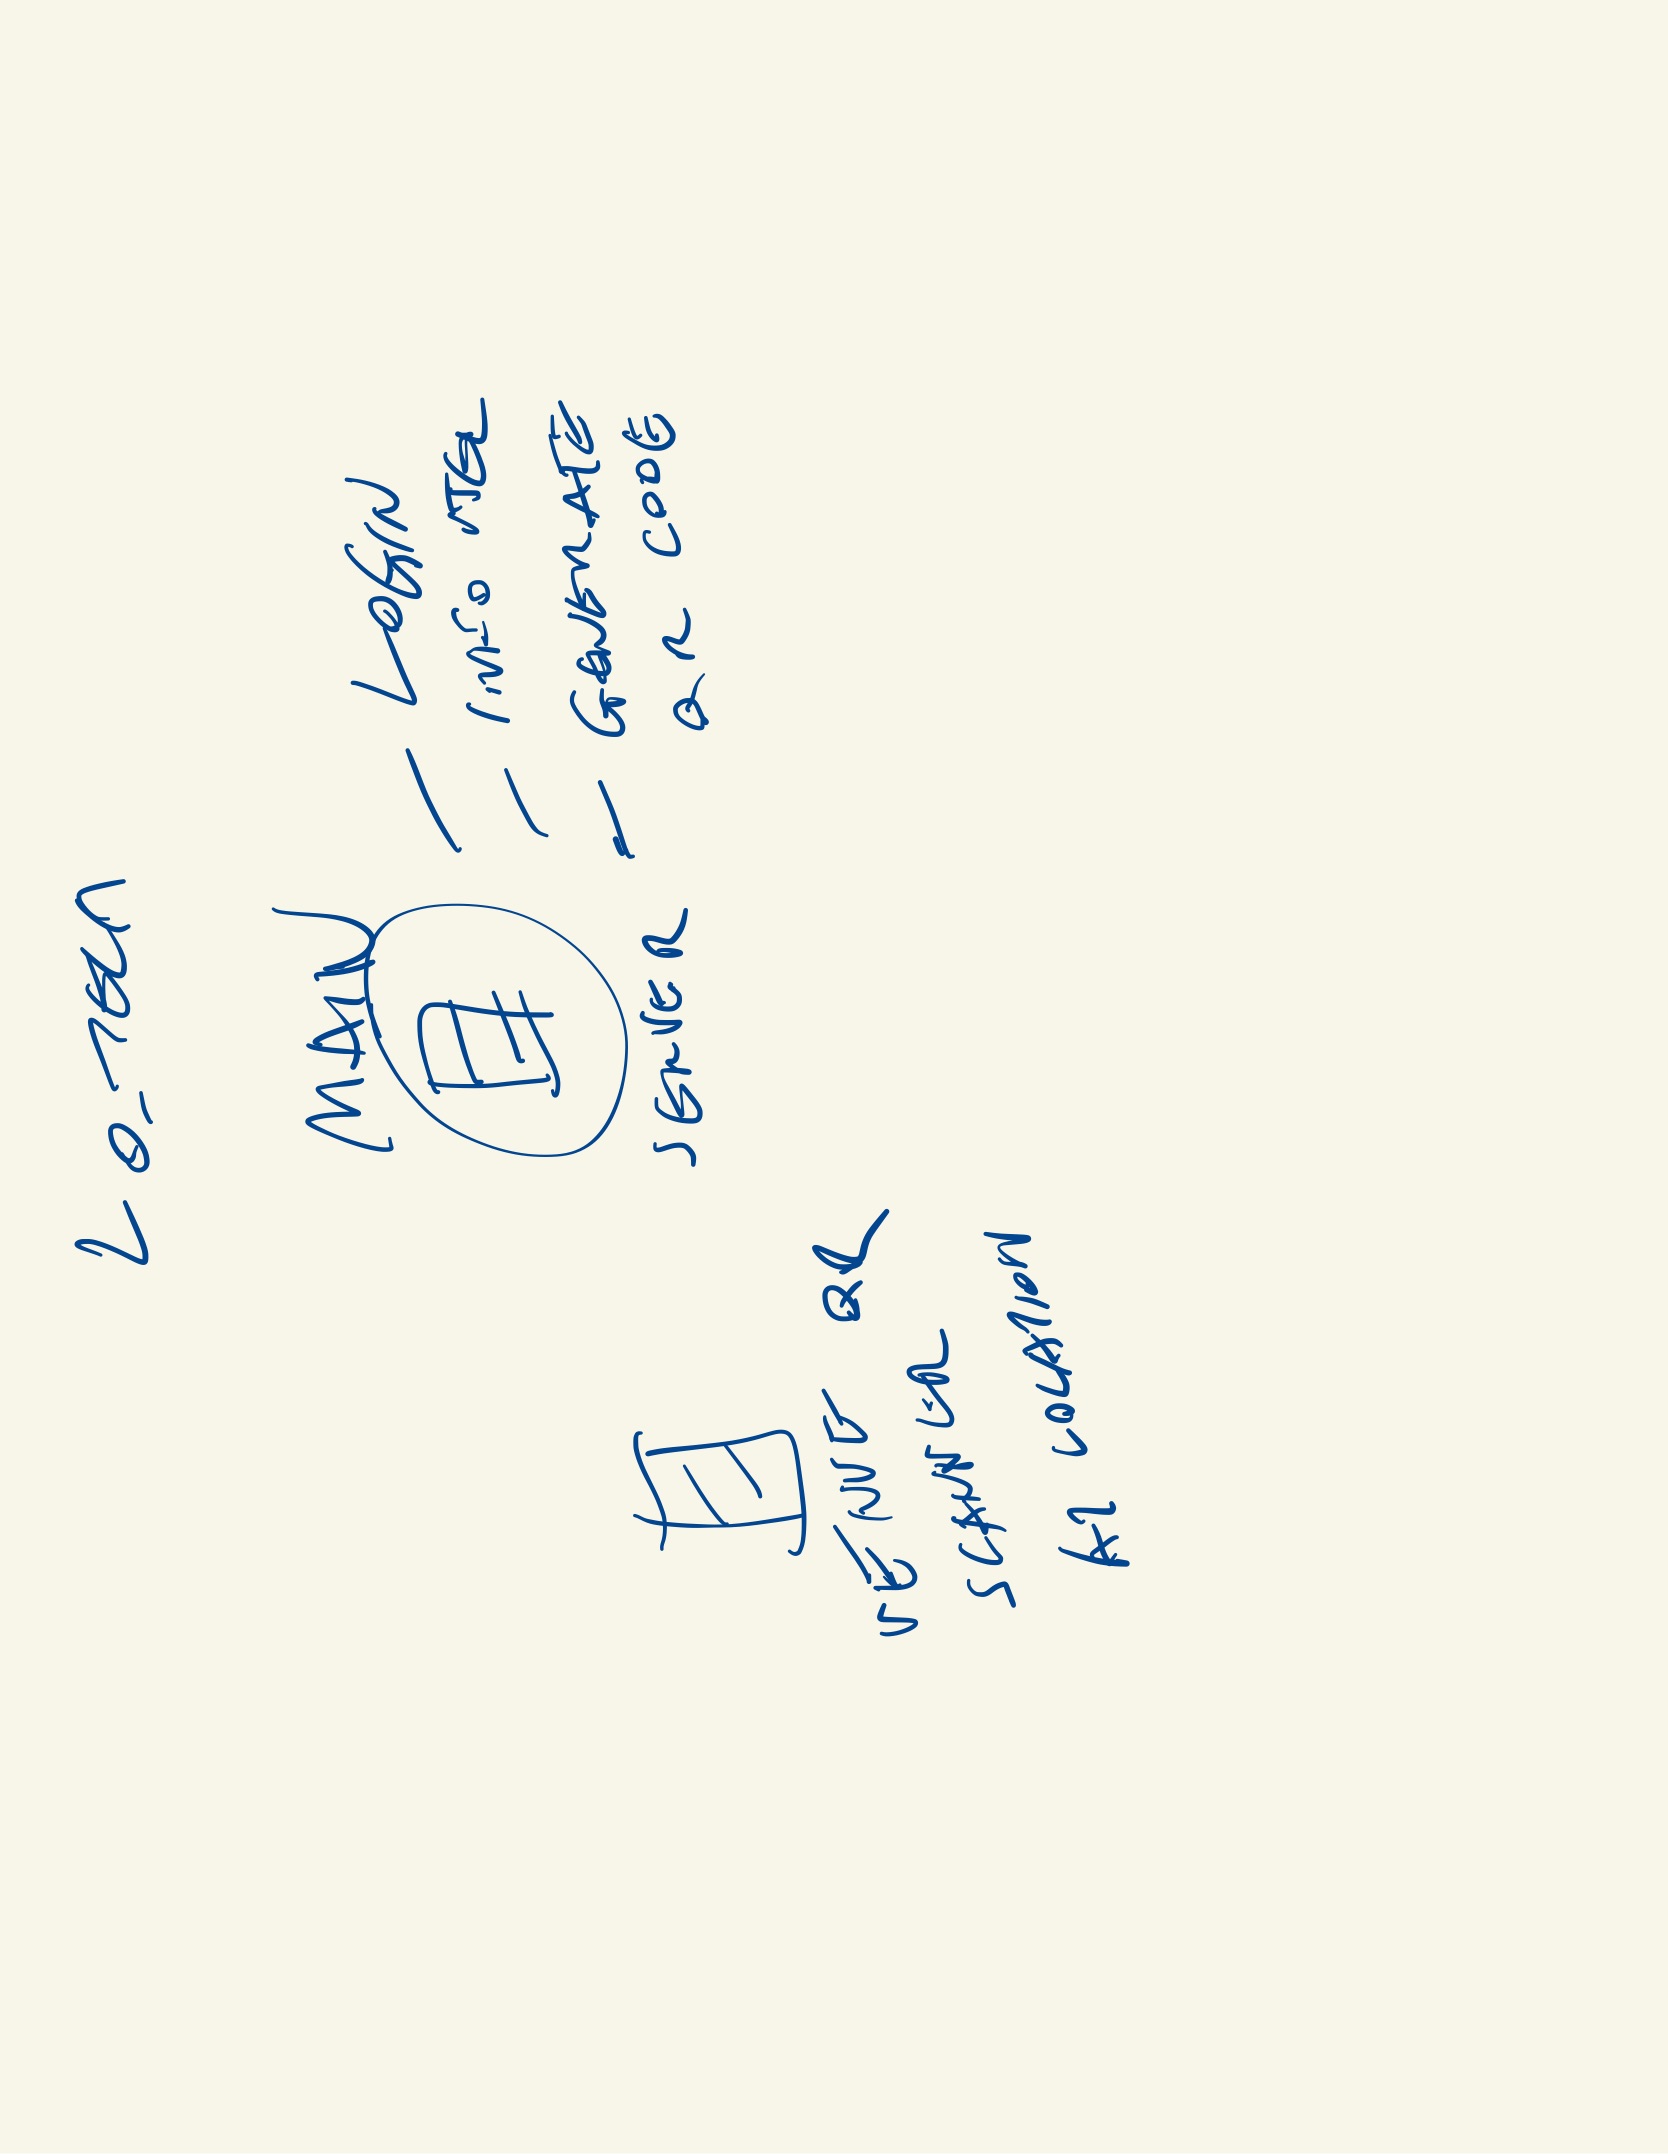 MAIN
SERVER
LOGIN
INFO
GENERATE
QR CODE
SEND QR
SCANNER
AZ LOCATION